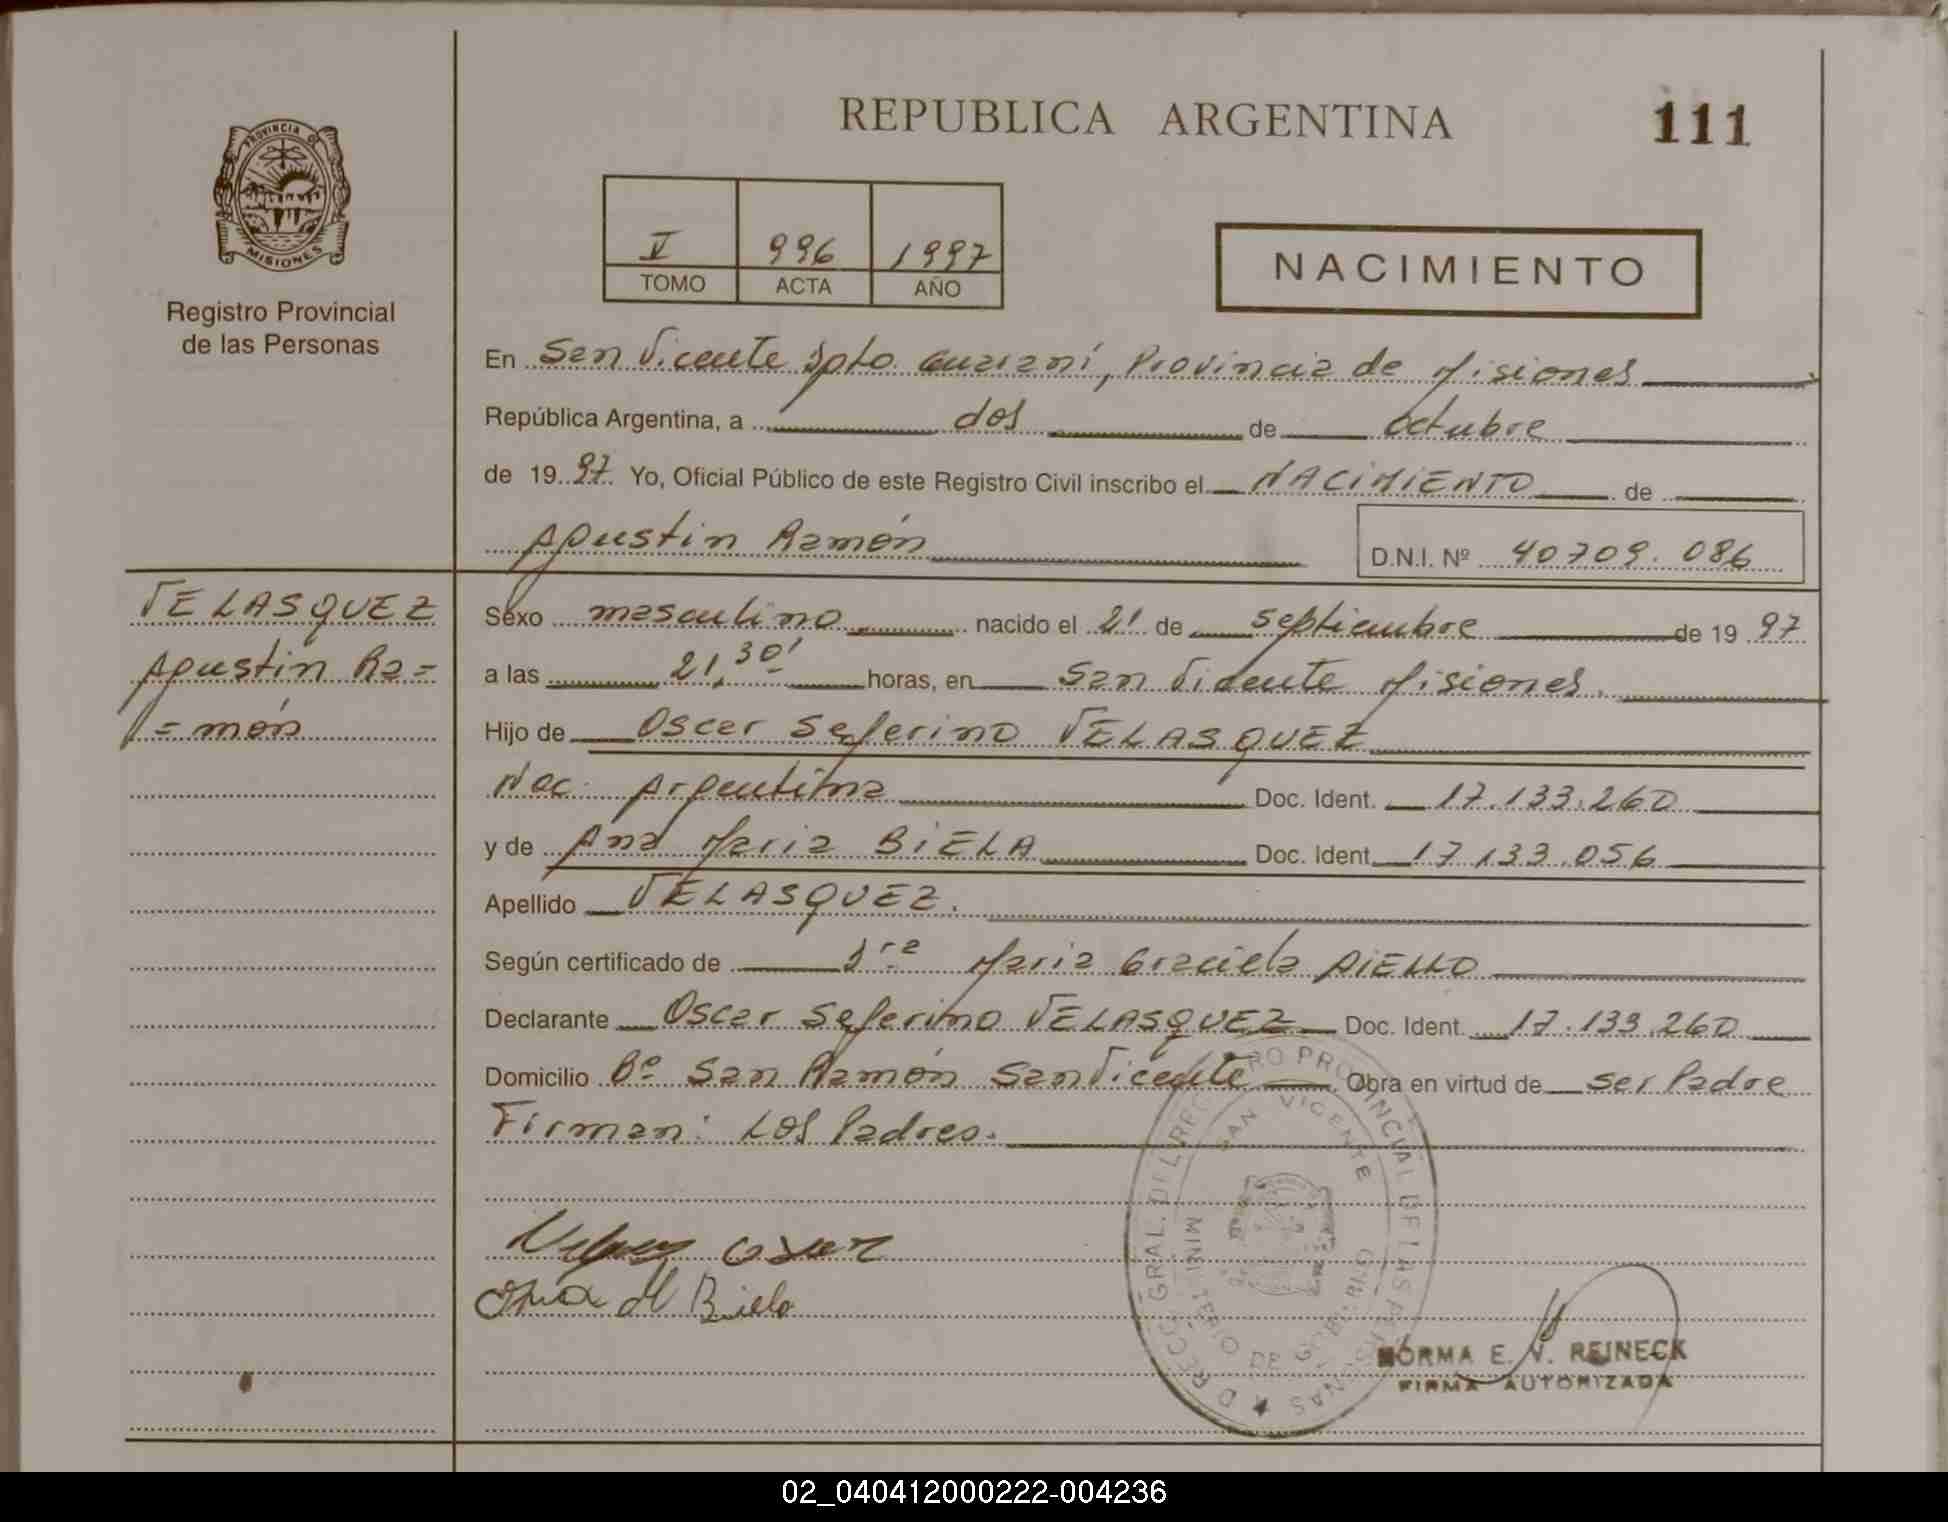 REPUBLICA ARGENTINA
111
PROVINCIA DE
MISIONES
Registro Provincial
de las Personas
V 996 1997
TOMO ACTA AÑO
NACIMIENTO
En San Vicente Dpto. Guaraní, Provincia de Misiones
República Argentina, a dos de octubre
de 1997 Yo, Oficial Público de este Registro Civil inscribo el NACIMIENTO de
Agustin Ramón
D.N.I. Nº 40709.086
VELASQUEZ
Agustin Ra=
=món
Sexo masculino nacido el 21 de septiembre de 1997
a las 21,30' horas, en San Vicente Misiones.
Hijo de Oscar Seferino VELASQUEZ
Nac. Argentina Doc. Ident. 17.133.260
y de Ana Maria BIELA Doc. Ident. 17.133.056
Apellido VELASQUEZ.
Según certificado de Dra Maria Graciela AIELLO
Declarante Oscar Seferino VELASQUEZ Doc. Ident. 17.133.260
Domicilio Bº San Ramón San Vicente Obra en virtud de ser Padre
Firman: Los Padres.
Oscar
Ana M Biela
DIRECC. GRAL. DEL REGISTRO PROVINCIAL DE LAS PERSONAS
SAN VICENTE
MINISTERIO DE GOB.
NORMA E. V. REINECK
FIRMA AUTORIZADA
02_040412000222-004236